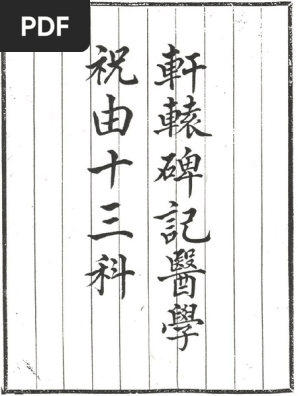 PDF
軒轅碑記醫學
祝由十三科